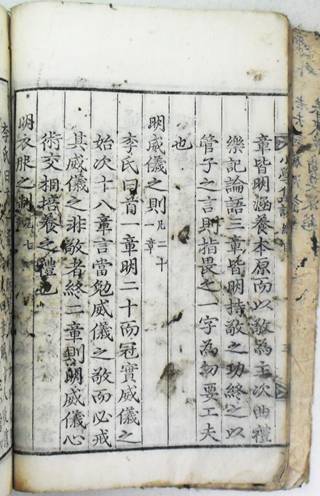 章皆明涵養本原而以敬為主次曲禮
樂記論語三章皆明持敬之功終之以
管子之言則指畏之一字為初要工夫
也
明威儀之則 凡二十一章
李氏曰首一章明二十而冠實威儀之
始次十八章言當勉威儀之敬而必戒
其威儀之非敬者終二章則明威儀心
術交相培養之禮也
明衣服之制 凡七
李氏曰